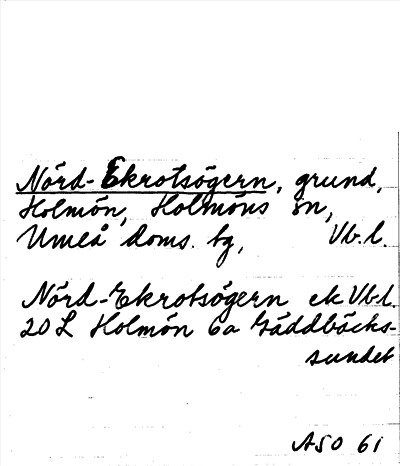 Nörd-Ekrotsögern, grund,
Holmön, Holmöns sn,
Umeå doms. tg, Vb.l.
Nörd-Ekrotsögern ek Vb.l.
20 L Holmön 6a Gäddbäcks-
sundet
ASO 61